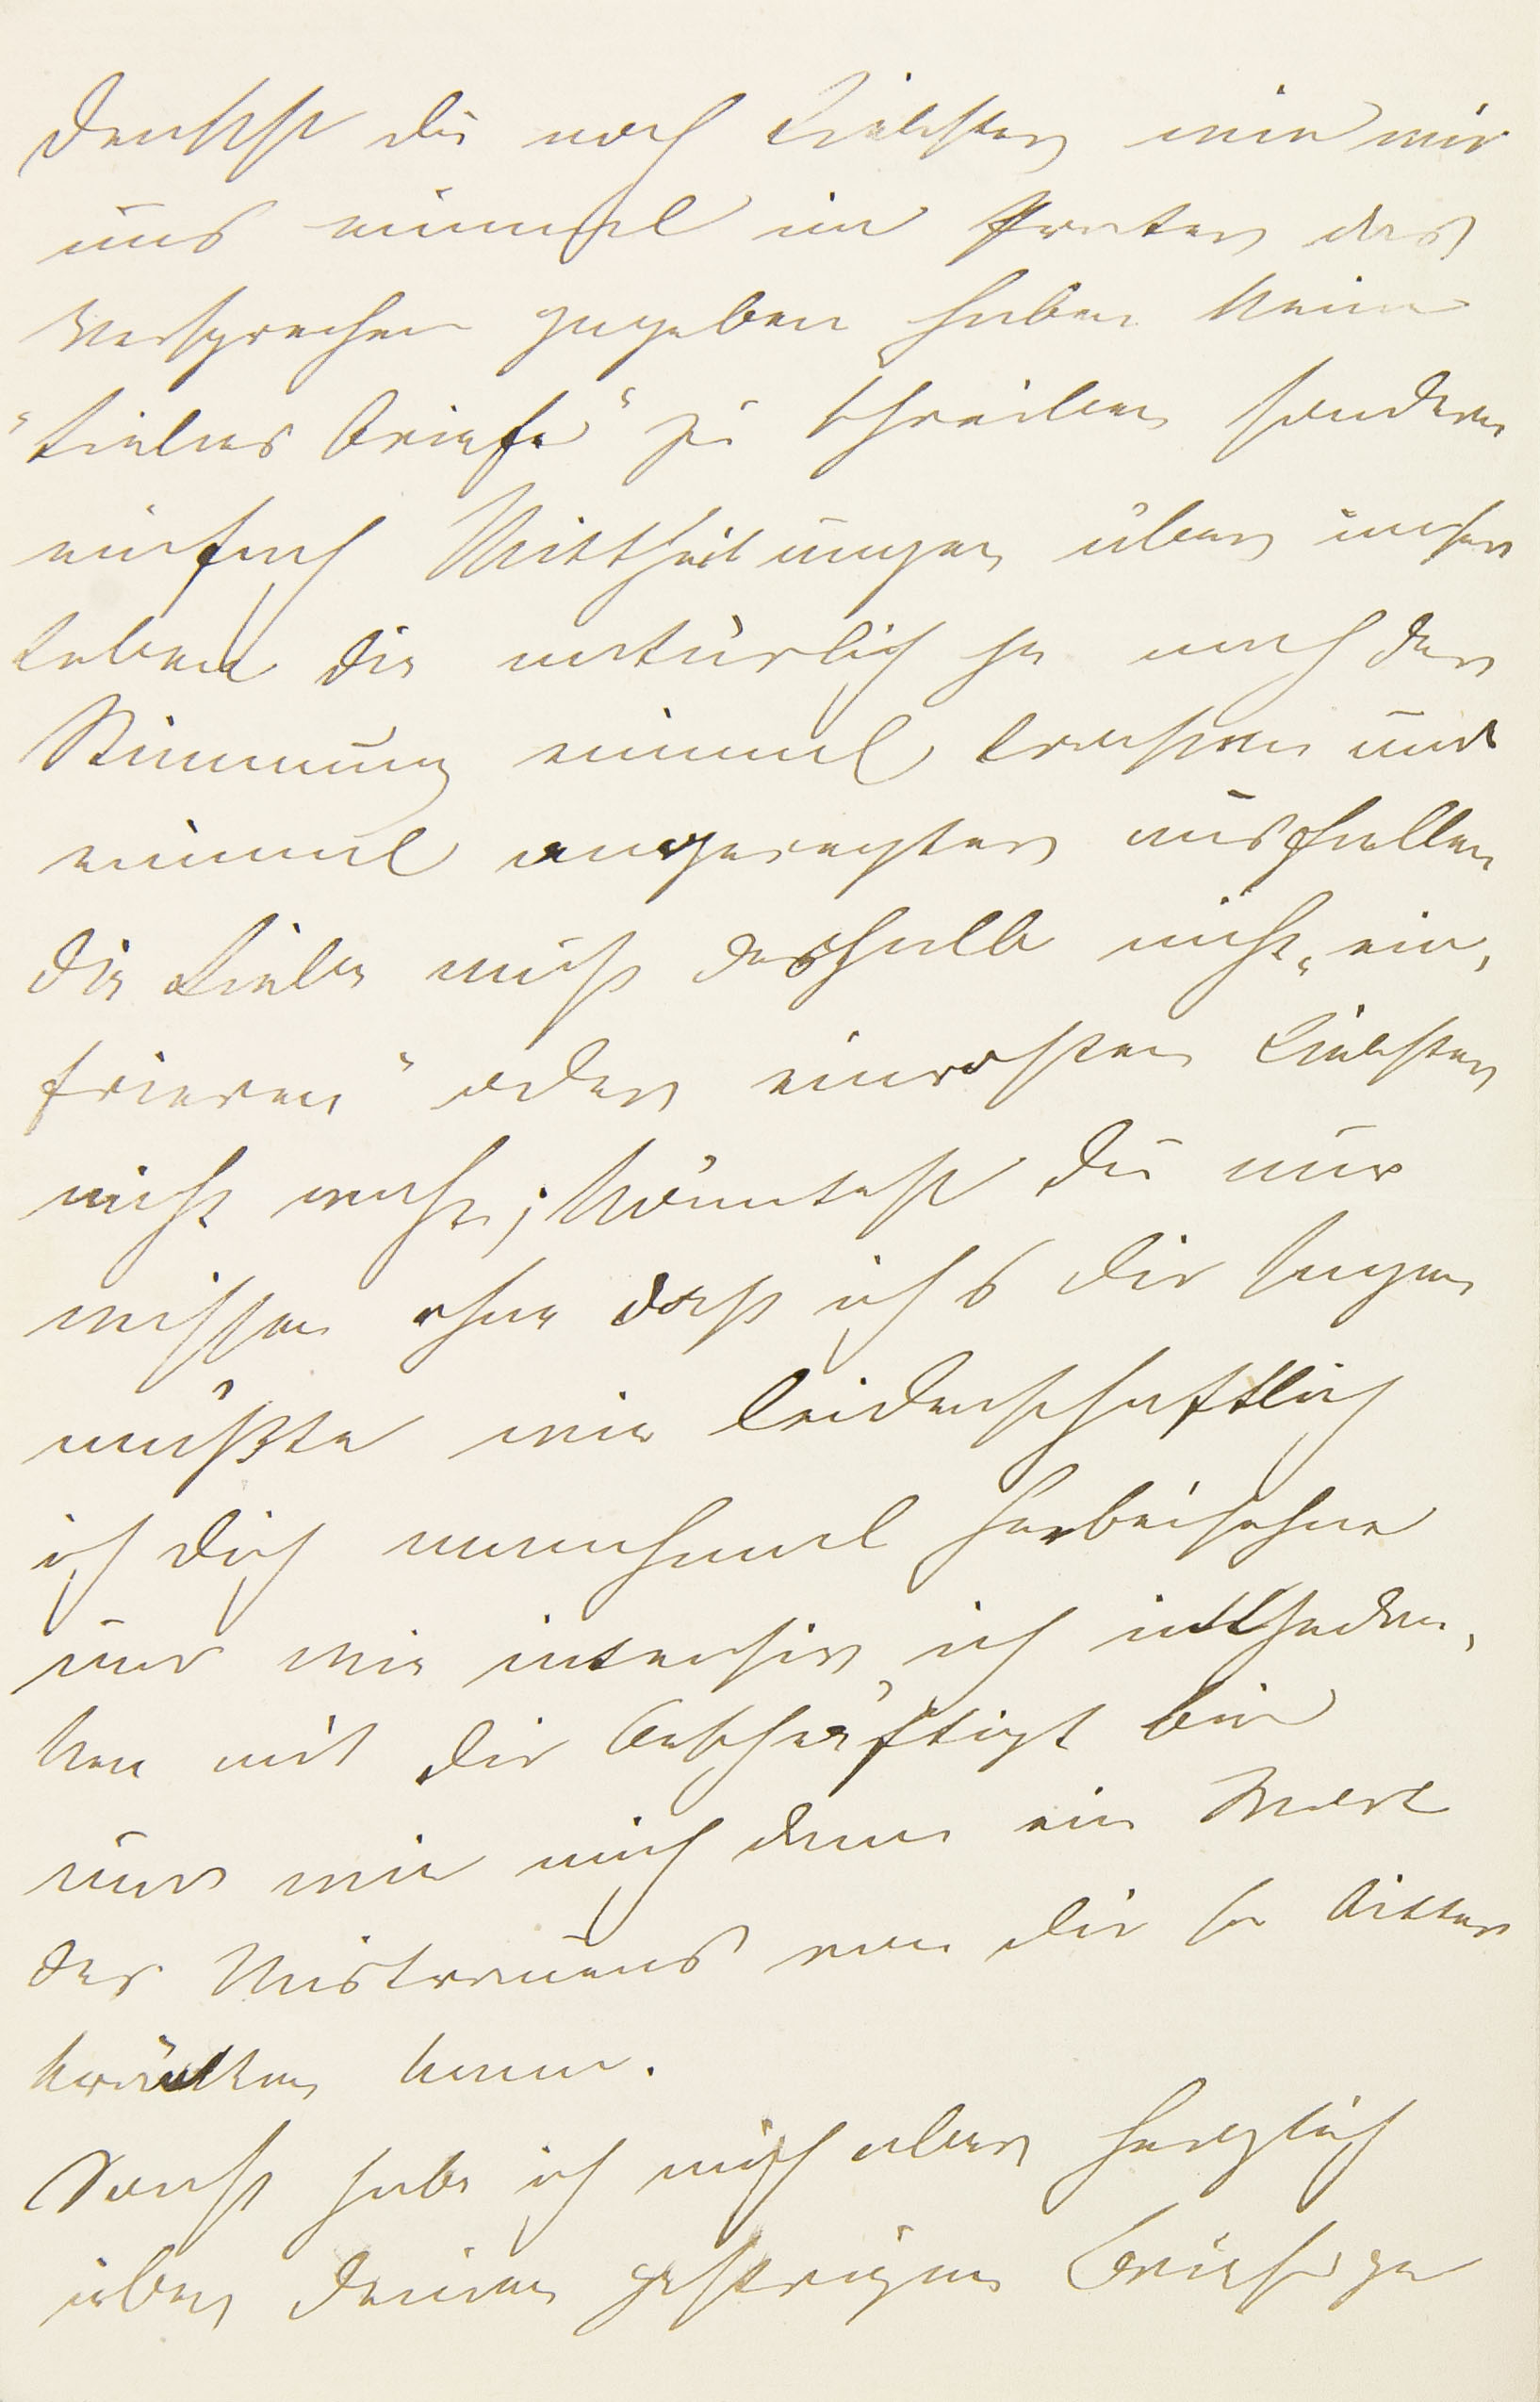 Denkst du noch Liebster wie wir
uns einmal im Prater das
Versprechen gegeben haben keine
"Liebes Briefe" zu schreiben sondern
einfach Mittheilungen über unser
Leben die natürlich je nach der
Stimmung einmal trocken und
einmal angeregter ausfallen
die Liebe muß deshalb nicht "ein,
frieren" oder einrosten Liebster
nicht wahr; könntest du nur
wissen ohne daß ich's dir sagen
müßte wie leidenschaftlich
ich dich manchmal herbeisehne
und wie intensiv ich in Gedan,
ken mit dir beschäftigt bin
und wie mich dann ein Wort
des Mistrauens von dir so bitter
kränken kann.
Sonst habe ich mich aber herzlich
über deinen gestrigen Brief ge